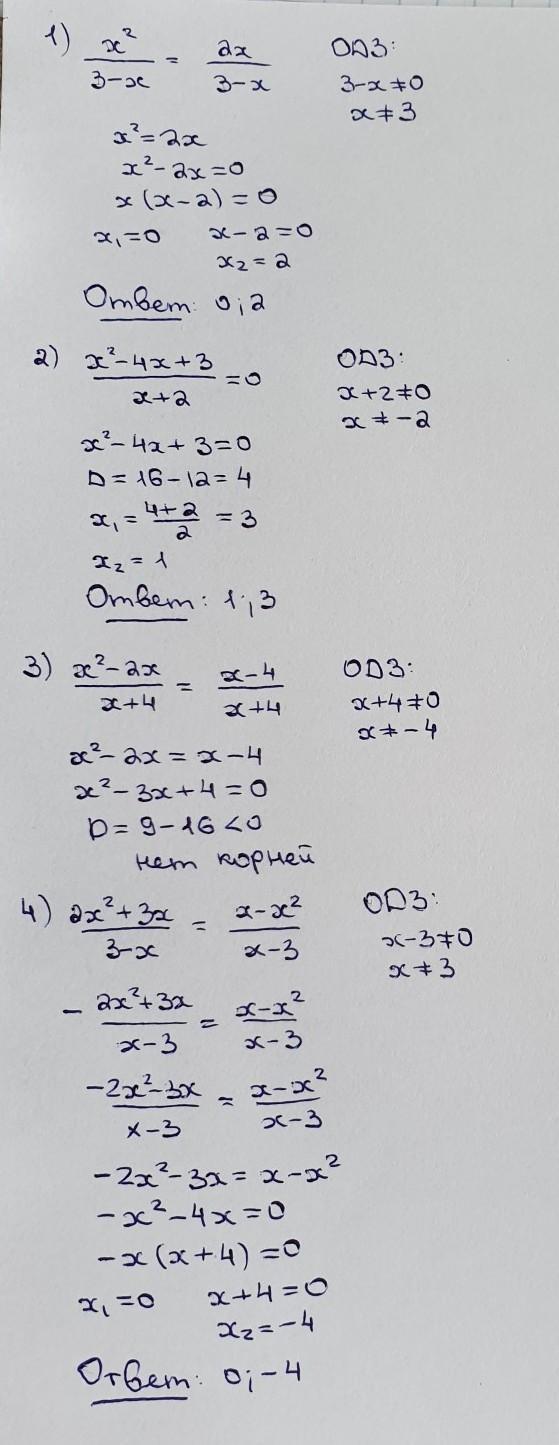 1) x²/(3-x) = 2x/(3-x) ОДЗ:
3-x≠0
x≠3
x²=2x
x²-2x=0
x(x-2)=0
x₁=0 x-2=0
x₂=2
Ответ: 0; 2
2) (x²-4x+3)/(x+2) =0 ОДЗ:
x+2≠0
x≠-2
x²-4x+3=0
D=16-12=4
x₁=(4+2)/2=3
x₂=1
Ответ: 1; 3
3) (x²-2x)/(x+4) = (x-4)/(x+4) ОДЗ:
x+4≠0
x≠-4
x²-2x=x-4
x²-3x+4=0
D=9-16<0
нет корней
4) (2x²+3x)/(3-x) = (x-x²)/(x-3) ОДЗ:
x-3≠0
x≠3
-(2x²+3x)/(x-3) = (x-x²)/(x-3)
(-2x²-3x)/(x-3) = (x-x²)/(x-3)
-2x²-3x=x-x²
-x²-4x=0
-x(x+4)=0
x₁=0 x+4=0
x₂=-4
Ответ: 0; -4